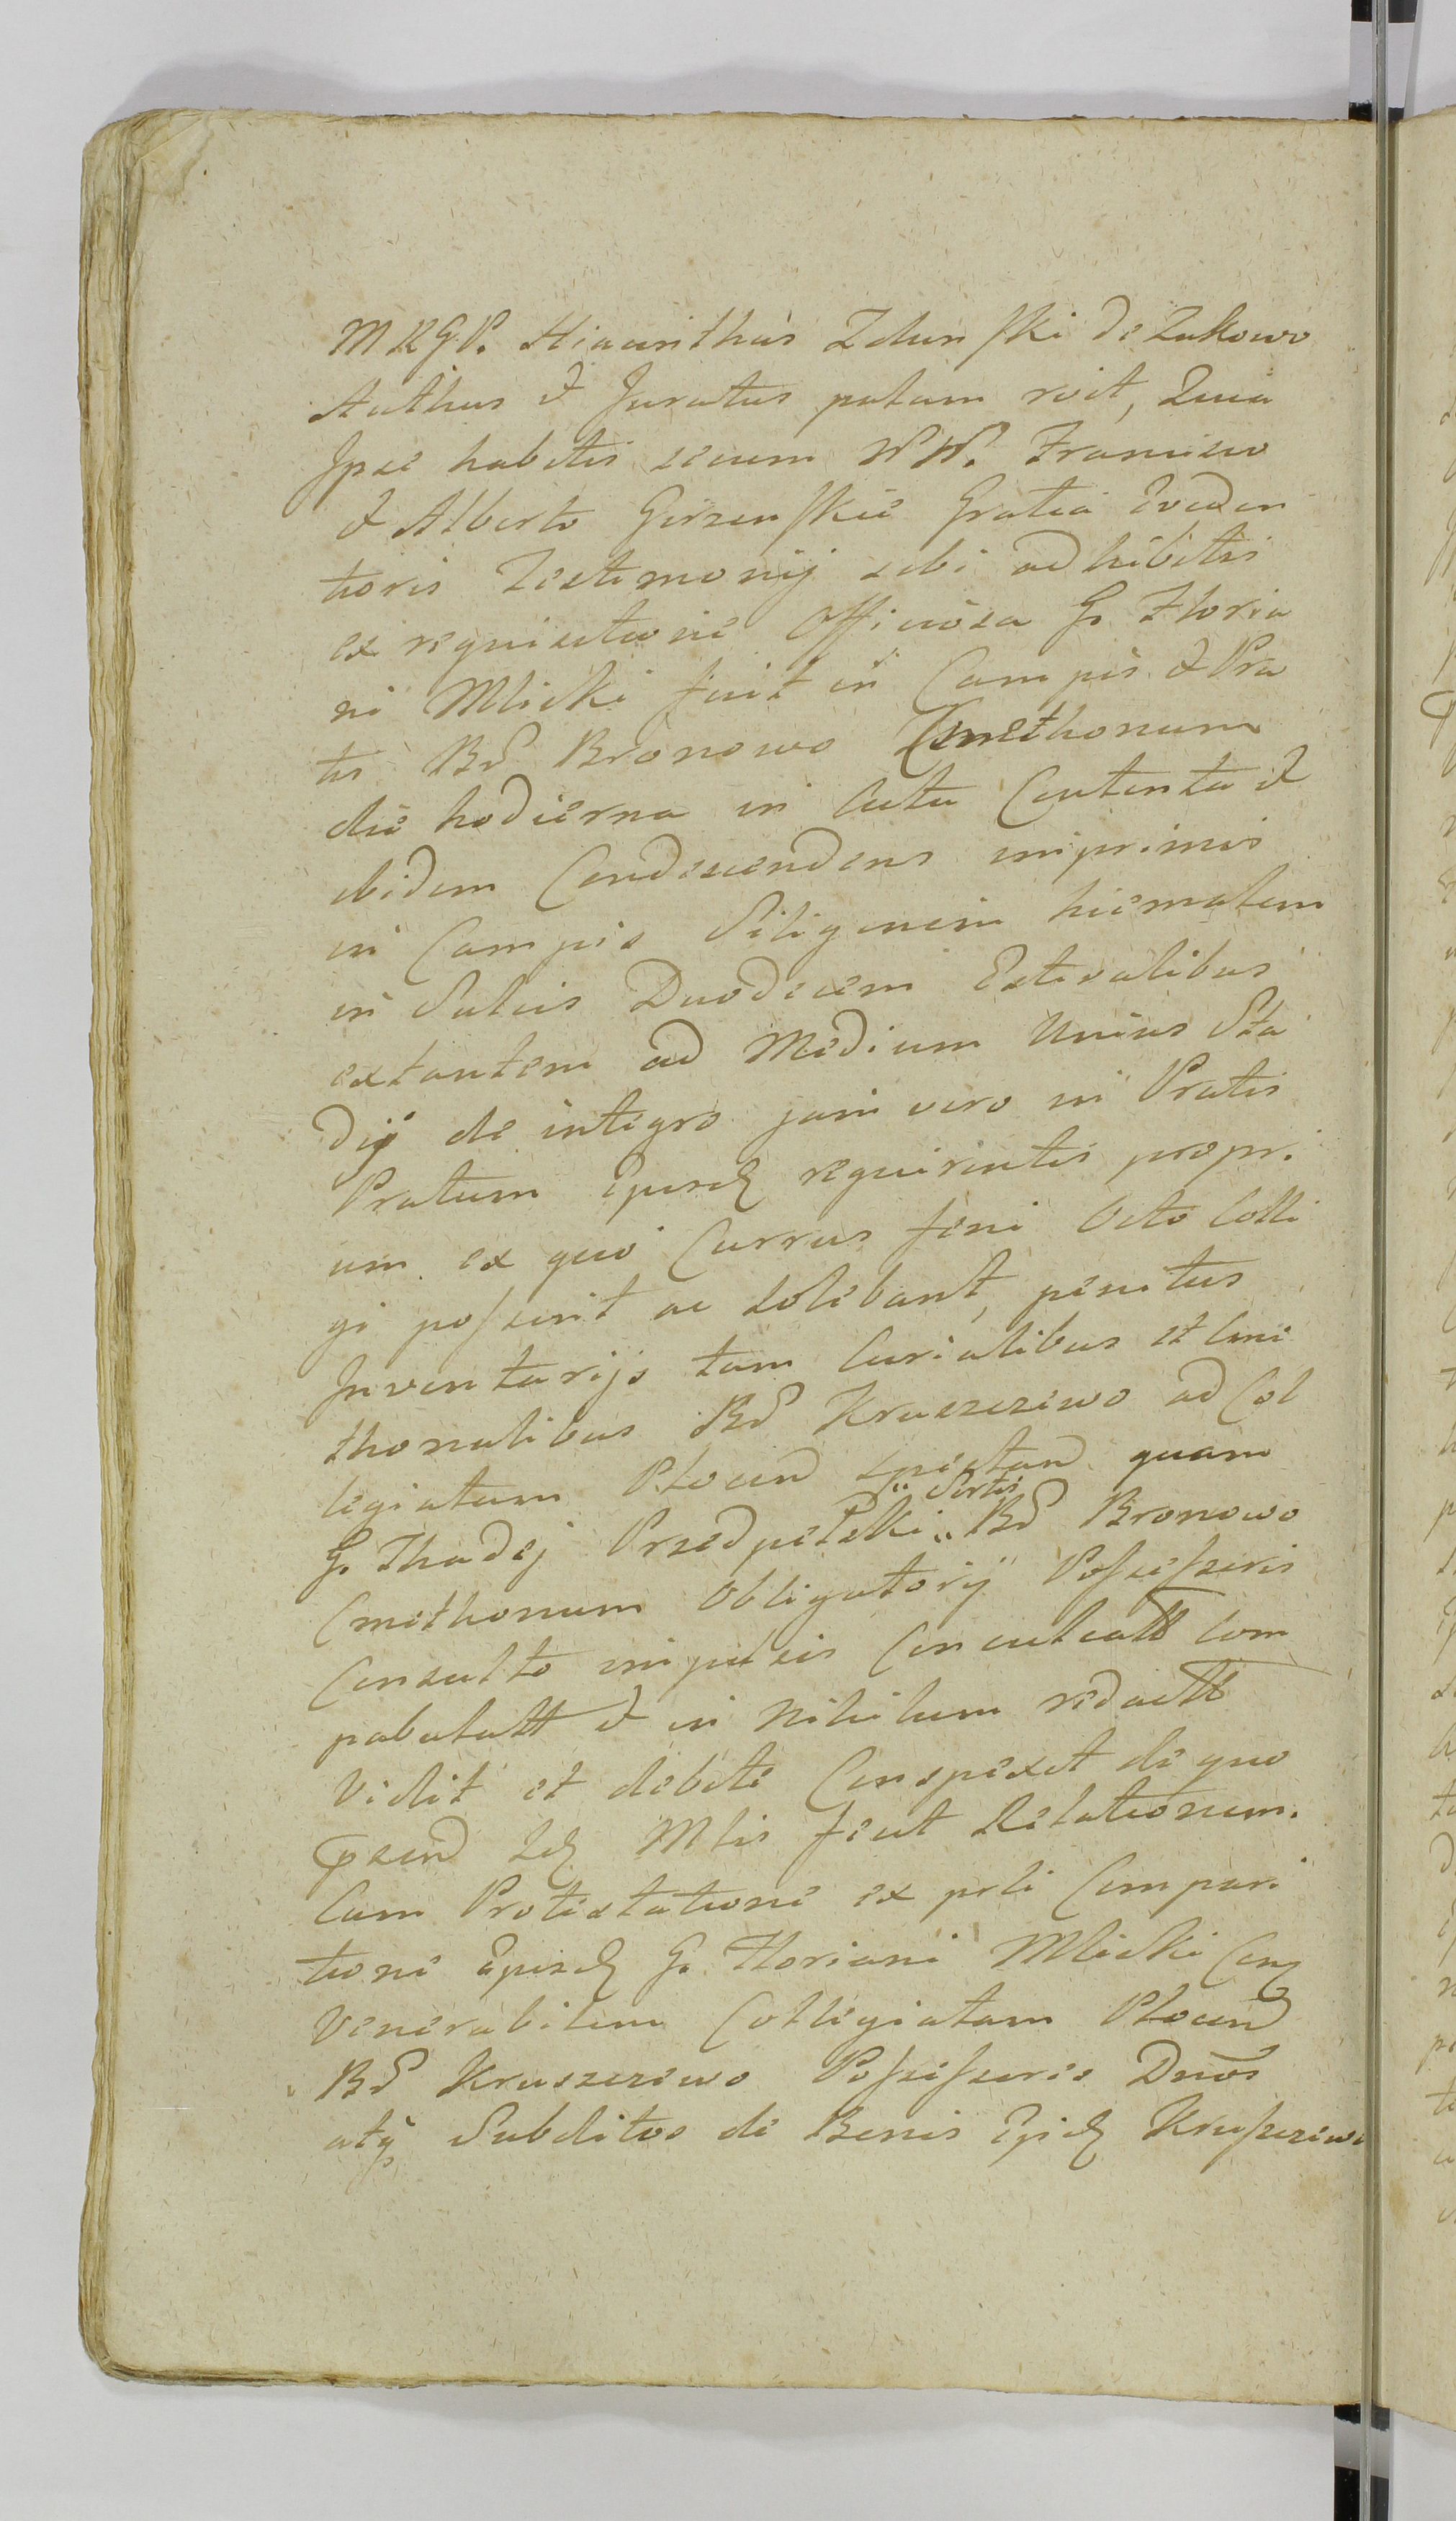 MRGP. Hiacinthus Zdunski de Zukowo
Authus & Juratus palam rvit, Quia
Ipse habitis secum NN. Francisco
& Alberto Girzenskie Gratia Eviden
tioris Testimonij sibi adhibitis
ex requisitione Officiosa G. Floria
ni Mlicki fuit in Campis & Pra
tis Bd Bronowo Cmethonum
die hodierna in Actu Contenta &
ibidem Condescendens inprimis
in Campis Siliginem hiematem
in Sulcis Duodecem Estivalibus
extantem ad Medium Unius Sta
dij de integro jam vero in Pratis
Pratum ejusd requirentis propri
um ex quo Currus feni Octo Colli
gi possunt ac solebant, penitus
Inventarijs tam Curialibus et Cme
thonalibus Bd Kruszczewo ad Col
legiatam Plocen spectan quam
G. Thadej Przedpelski " Sortis " Bd Bronowo
Cmethonum Obligatorij Possessoris
Consulto impulsis Conculcatt Com
pabulatt & in Nihilum redactt
Vidit et debite Conspexit de quo
psend Ld Mtis fecit Relationem.
Cum Protestatione ex psli Compari
tione ejusd G. Floriani Mlicki Con
Venerabilem Collegiatam Plocen
Bd Kruszczewo Possessoris Dnos
atq Subditos de Benis Ejusd Kruszczewo